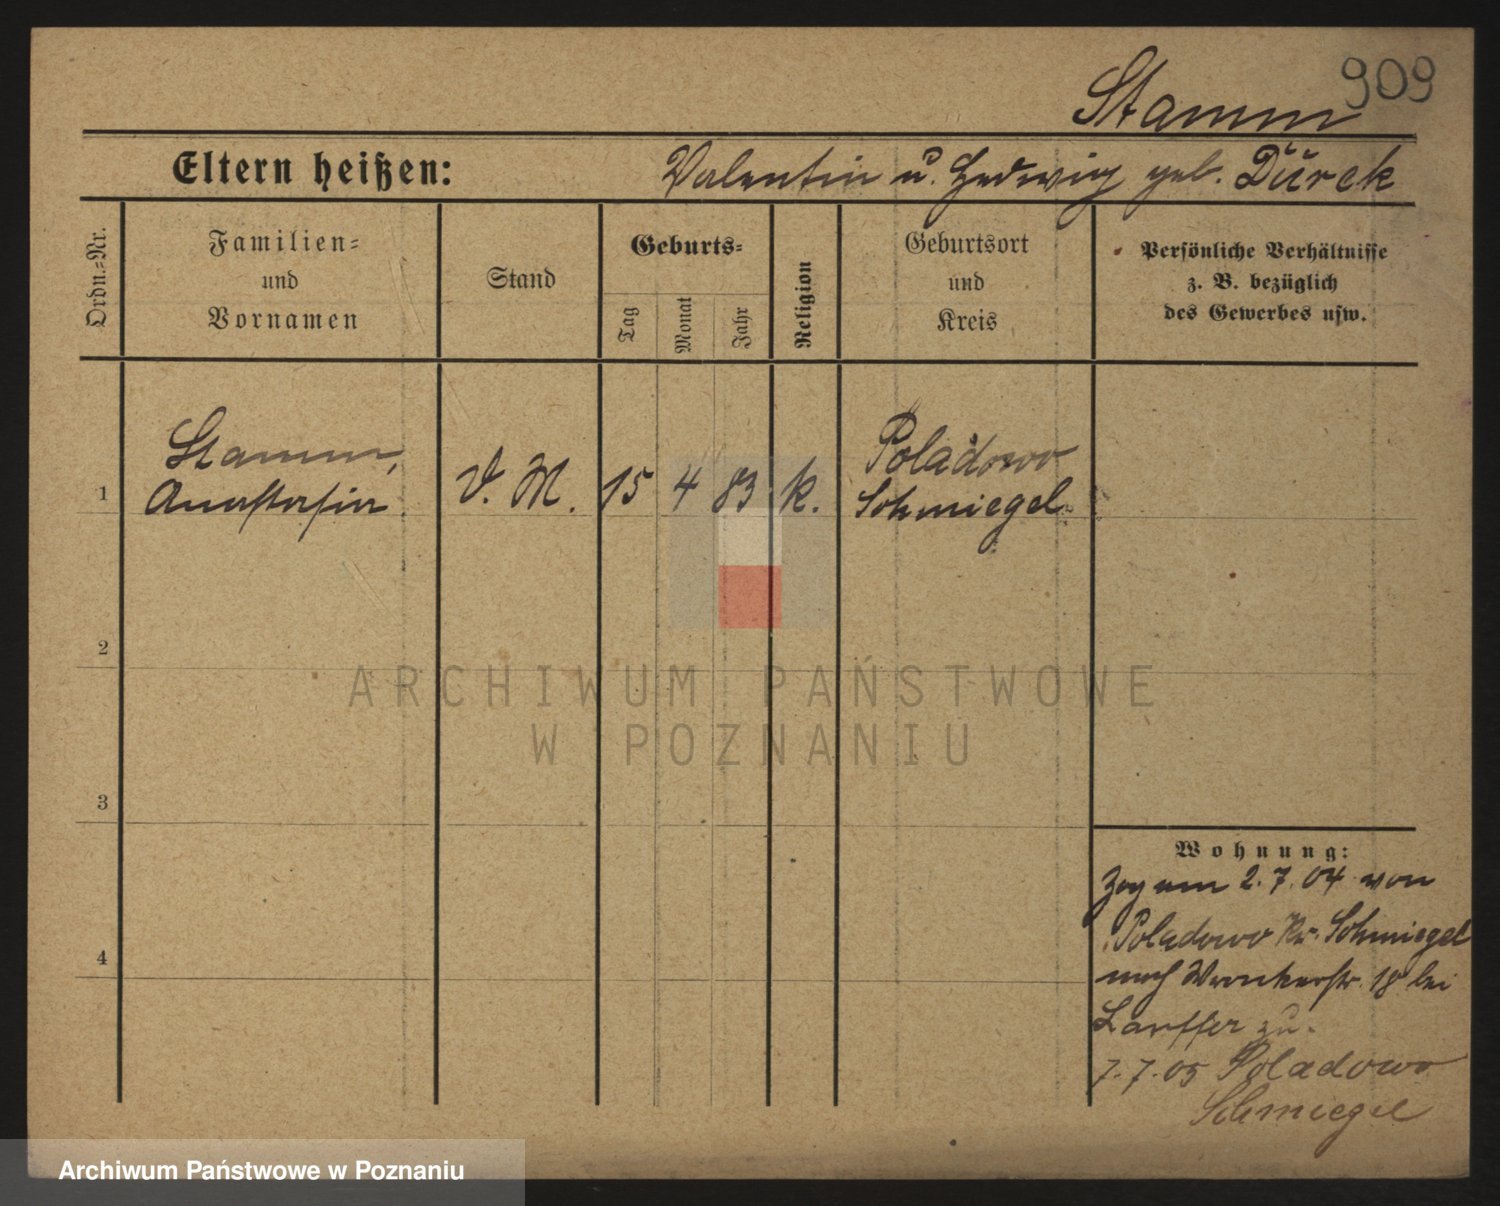 909
Stamm
Eltern heißen: Valentin u. Hedwig geb. Dürck
Ordn.=Nr.
Familien=
und
Vornamen
Stand
Geburts=
Tag
Monat
Jahr
Religion
Geburtsort
und
Kreis
Persönliche Verhältnisse
z. B. bezüglich
des Gewerbes usw.
Stamm, Poladowo
1 Anastasia 15 4 83 k. Schmiegel
2
3
4
Wohnung:
Zog am 2.7.04 von
Poladowo Kr. Schmiegel
nach Wronkerstr. 18 bei
zu.
7.7.05 Poladowo
Schmiegel
ARCHIWUM PAŃSTWOWE
W POZNANIU
Archiwum Państwowe w Poznaniu